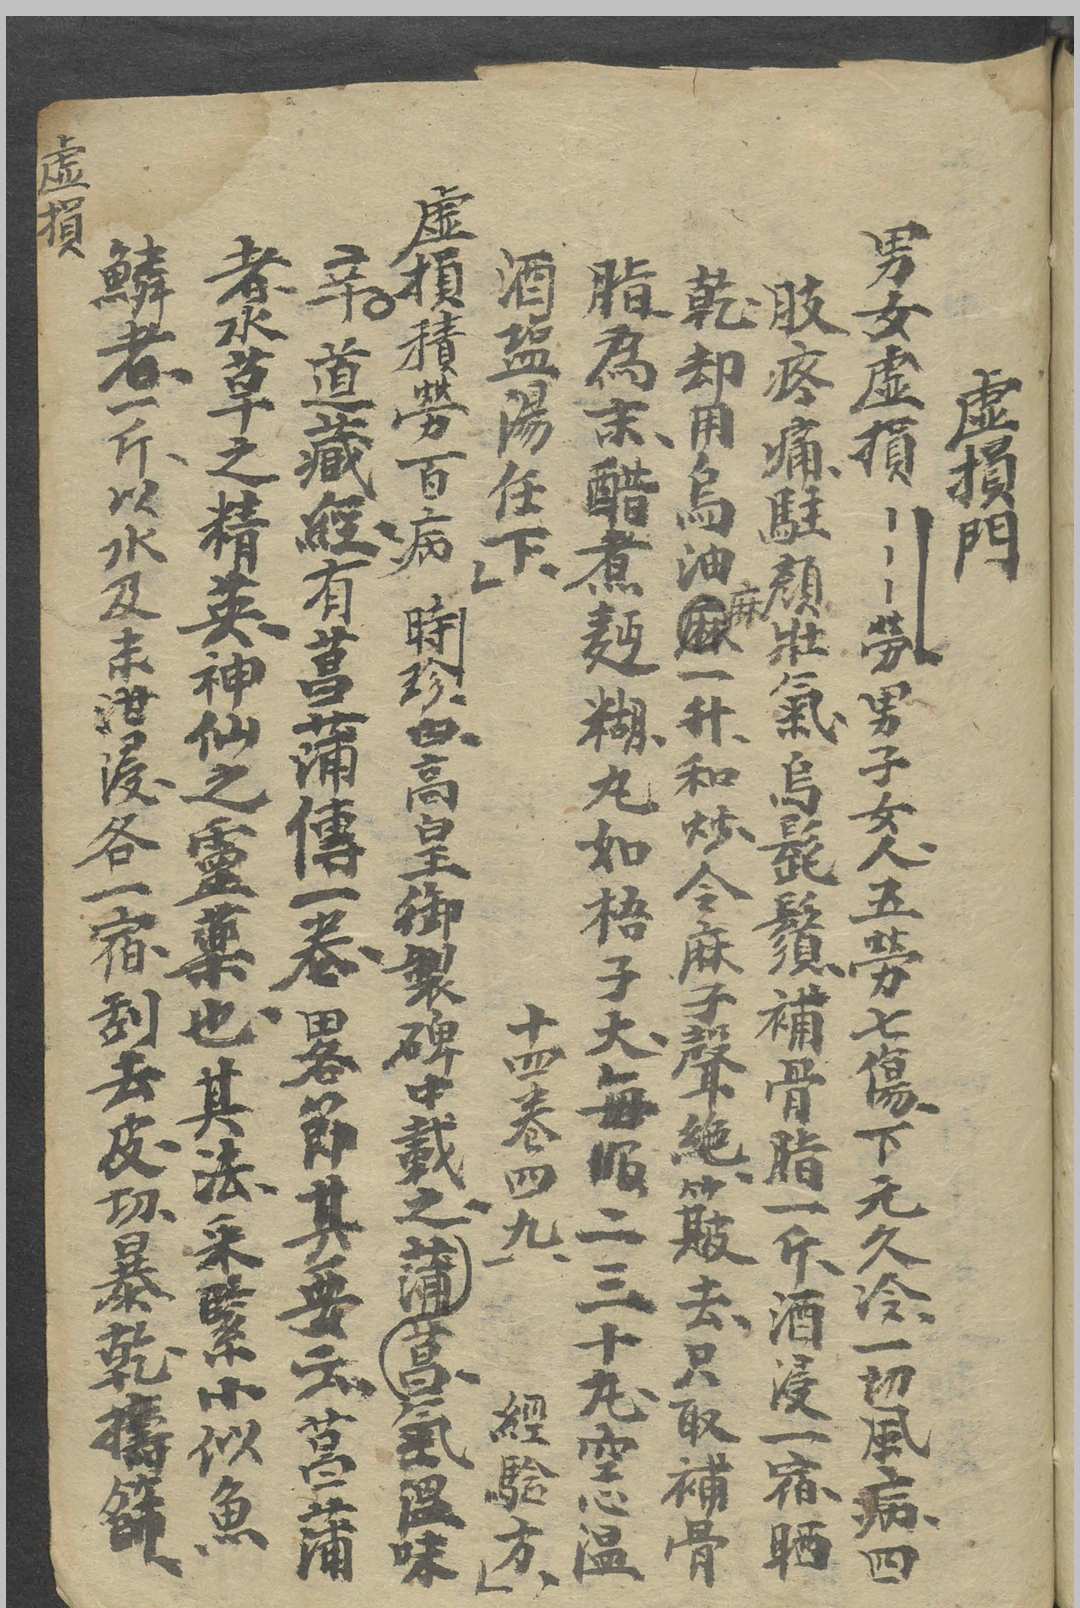 虛損門
男女虛損〡〡〡勞男子女人五勞七傷下元久冷一切風病四
肢疼痛駐顏壯氣烏髭鬚補骨脂一斤酒浸一宿晒
乾却用烏油麻一升和炒令麻子聲絕簸去只取補骨
麻
脂為末醋煮麪糊丸如梧子大每服二三十丸空心溫
酒塩湯任下 十四卷四九 經驗方
虛損積勞百病 時珍曰高皇御製碑中載之蒲菖氣溫味
辛道藏經有菖蒲傳一卷畧節其要云菖蒲
者水草之精英神仙之靈藥也其法采緊小似魚
鱗者一斤以水及末泔浸各一宿刮去皮切暴乾擣篩
虛損